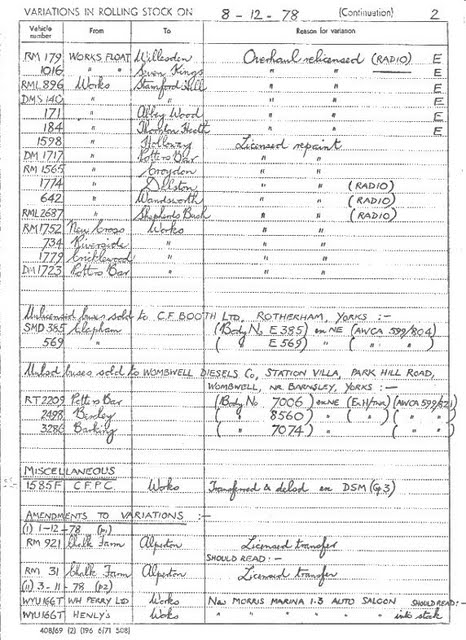 VARIATIONS IN ROLLING STOCK ON 8 - 12 - 78 (Continuation) 2
Vehicle number From To Reason for variation
RM 179 WORKS FLOAT Willesden Overhaul relicensed (RADIO) E
1016 " " Seven Kings " " E
RML 896 Works Stamford Hill " " E
DMS 140 " " " " E
171 " Abbey Wood " " E
184 " Thornton Heath " " E
1598 " Holloway Licensed repaint
DM 1717 " Potters Bar " "
RM 1565 " Croydon " "
1774 " Dalston " " (RADIO)
642 " Wandsworth " " (RADIO)
RML 2687 " Shepherds Bush " " (RADIO)
RM 1752 New Cross Works " "
734 Riverside " " "
1779 Cricklewood " " "
DM 1723 Potters Bar " " "
Unlicensed buses sold to C.F. BOOTH LTD, ROTHERHAM, YORKS :-
SMD 385 Clapham (Body No E 385) ex NE (AWCA 599/804)
569 " ( " E 569) " ( " " )
Unlicd buses sold to WOMBWELL DIESELS Co, STATION VILLA, PARK HILL ROAD,
WOMBWELL, NR BARNSLEY, YORKS :-
RT 2209 Potters Bar (Body No 7006) ex NE (Ex H/tnr) (AWCA 599/821)
2498 Bexley ( " 8560) " ( " ) ( " " )
3286 Barking ( " 7074) " ( " " )
MISCELLANEOUS
1585F C.F.P.C. Works Transferred & delsd ex DSM (Gp 3)
AMENDMENTS TO VARIATIONS :-
(i) 1-12-78 (p1)
RM 921 Chalk Farm Alperton Licensed transfer
SHOULD READ :-
RM 31 Chalk Farm Alperton Licensed transfer
(ii) 3-11-78 (p2)
WYU 166T WH PERRY LTD Works New MORRIS MARINA 1·3 AUTO SALOON SHOULD READ :-
WYU 166T HENLY'S Works " " " " " into stock
408/69 (2) (196 6/71 508)